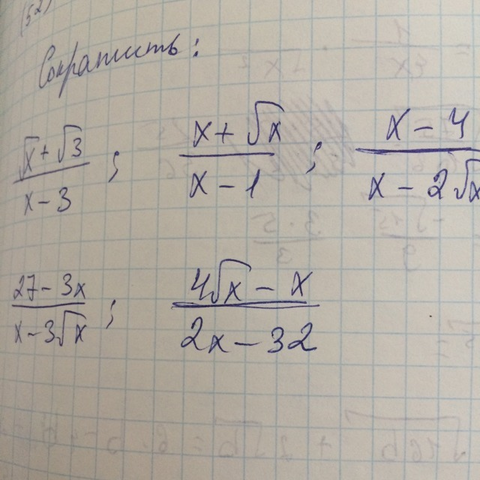 Сократить:
(√x + √3)/(x - 3) ; (x + √x)/(x - 1) ; (x - 4)/(x - 2√x
(27 - 3x)/(x - 3√x) ; (4√x - x)/(2x - 32)